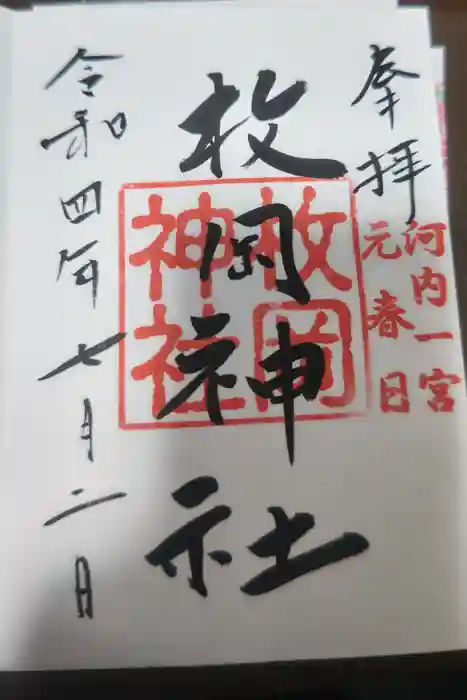 奉拝
河内一宮
元春日
枚岡神社
枚岡
神社
令和四年七月二日